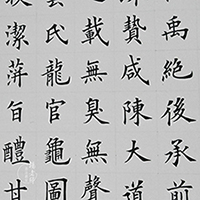 禹絶後承前
贄咸陳大道
之載無臭無聲
雲氏龍官龜圖
潔萍旨醴甘